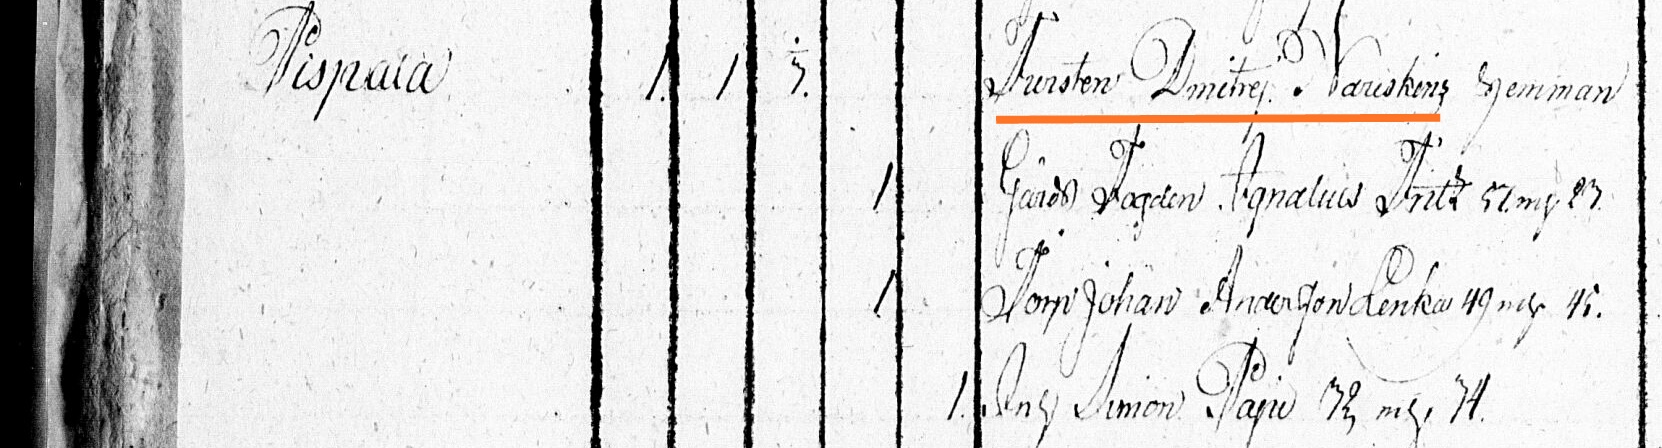 Pispala 1. 1 3. Fursten Dmitrej. Nariskins Hemman
1 Gårds Fogden Ignatius Fritz 57. mg 23.
1 Torp Johan Andersson Lenka 49 mg 45.
1. Inh Simon Paju 72 mg. 74.